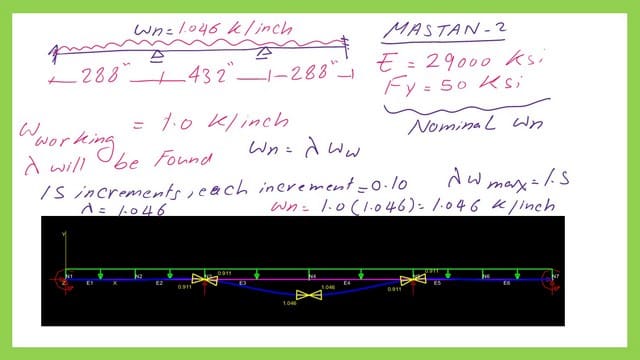 wn=1.046 K/inch
288" 432" 288"
MASTAN-2
E = 29000 Ksi
Fy=50 Ksi
Nominal wn
Wworking = 1.0 K/inch
λ will be Found
wn = λ ww
15 increments, each increment=0.10
λ wmax=1.5
λ = 1.046
wn = 1.0(1.046)=1.046 K/inch
Y
0.911 0.911
N1 N2 N4 N6 N7
Z E1 X E2 E3 E4 E5 E6
0.911 0.911
1.046
1.046